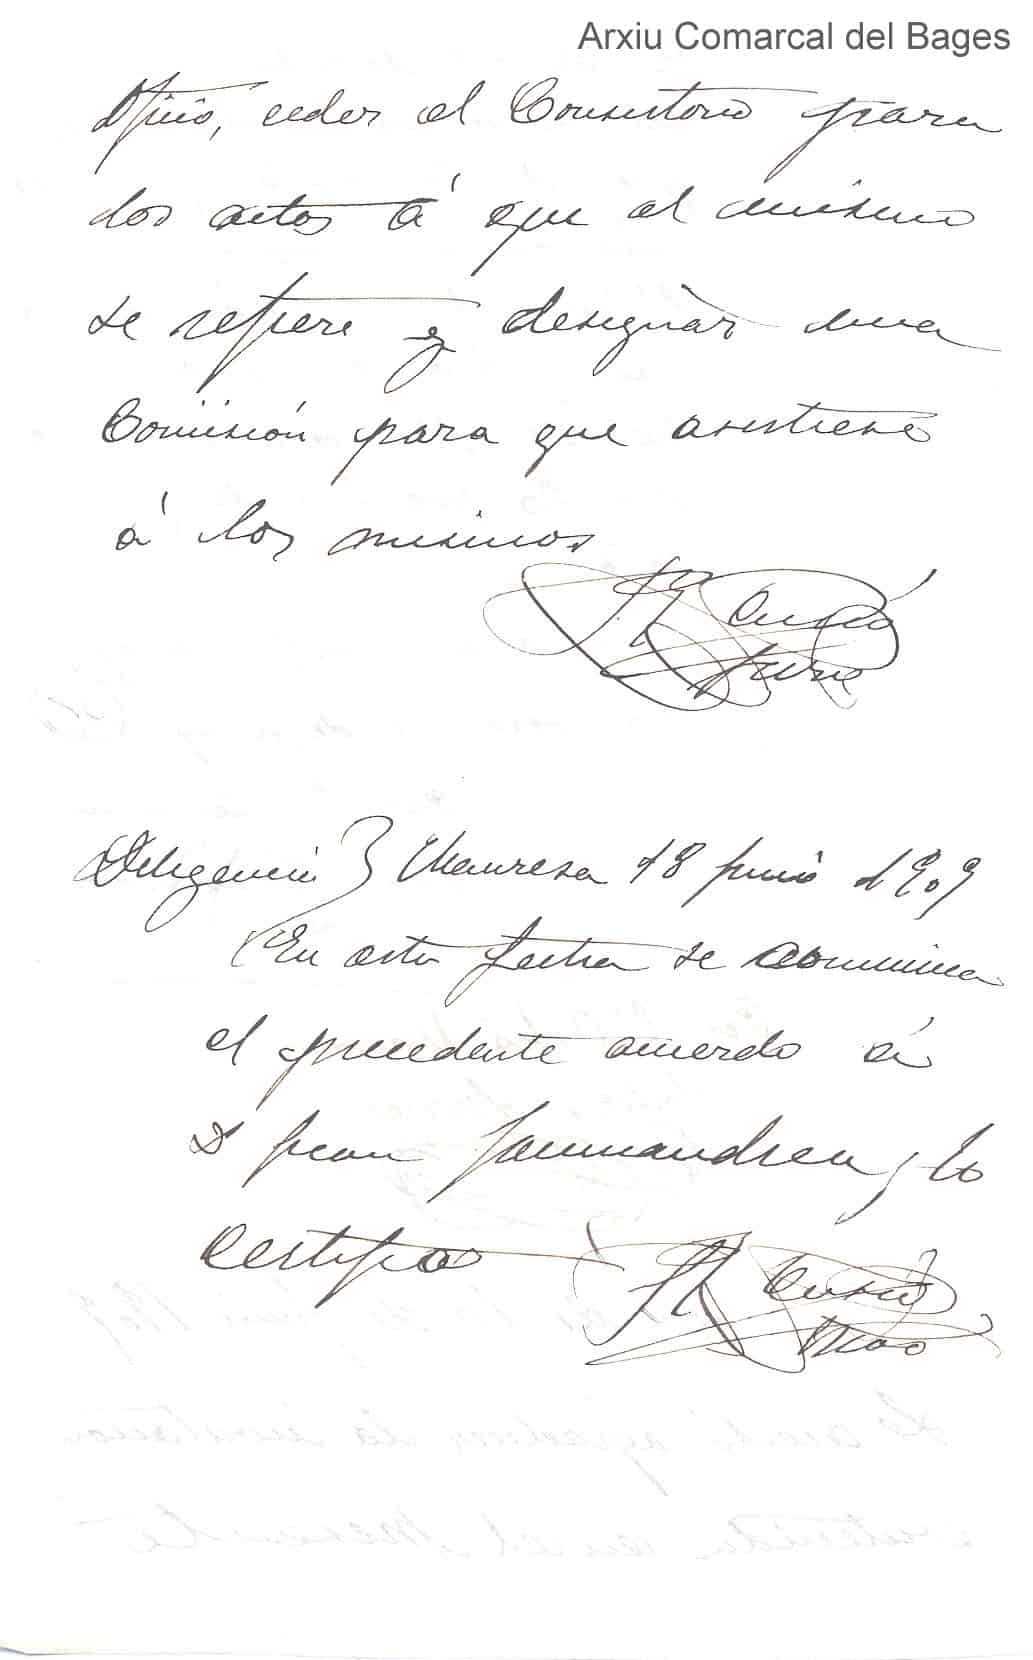 Arxiu Comarcal del Bages
Oficio, ceder el Consistorio para
los actos á que el mismo
se refiere y designar una
Comisión para que asistiese
á los mismos
Diligencia } Manresa 18 junio 1909
En esta fecha se comunica
el precedente acuerdo á
D Juan Jaumandreu, lo
Certifico